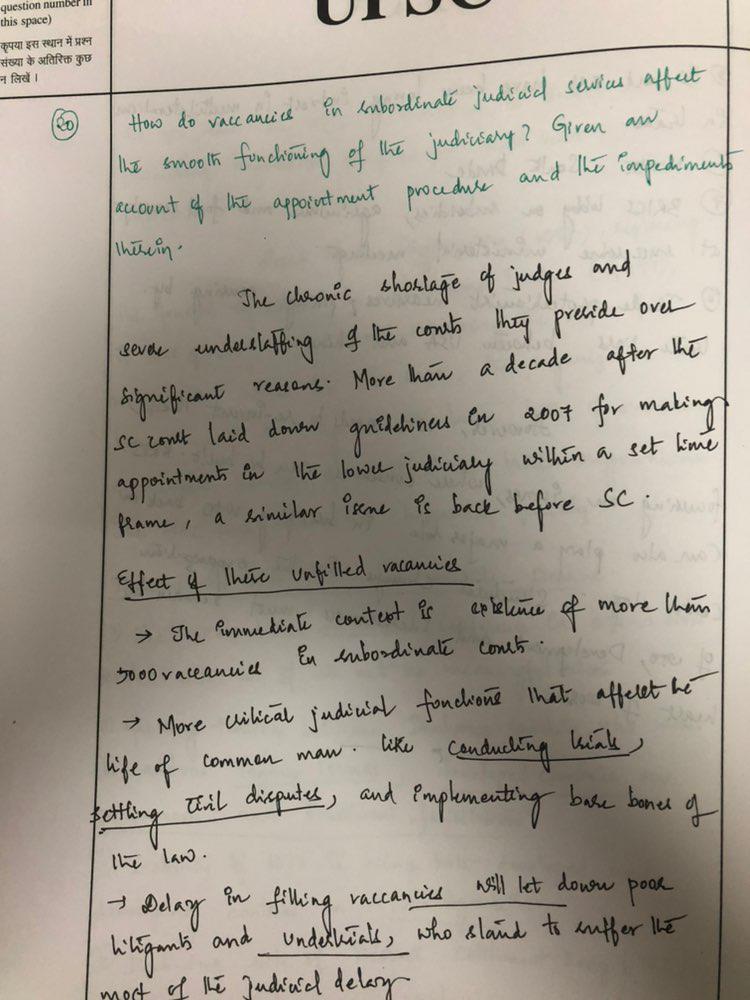 question number in
this space)
कृपया इस स्थान में प्रश्न
संख्या के अतिरिक्त कुछ
न लिखें ।
UPSC
20
How do vaccancies in subordinate judicial services affect
the smooth functioning of the judiciary? Given an
account of the appointment procedure and the impediments
therein.
The chronic shortage of judges and
severe understaffing of the courts they preside over
significant reasons. More than a decade after the
SC court laid down guidelines in 2007 for making
appointments in the lower judiciary within a set time
frame, a similar issue is back before SC.
Effect of there unfilled vacancies
→ The immediate context is existence of more than
5000 vaccancies in subordinate courts.
→ More critical judicial functions that affect the
life of common man. like conducting trials,
settling civil disputes, and implementing bare bones of
the law.
→ Delay in filling vaccancies will let down poor
litigants and undertrials, who stand to suffer the
most of the judicial delay